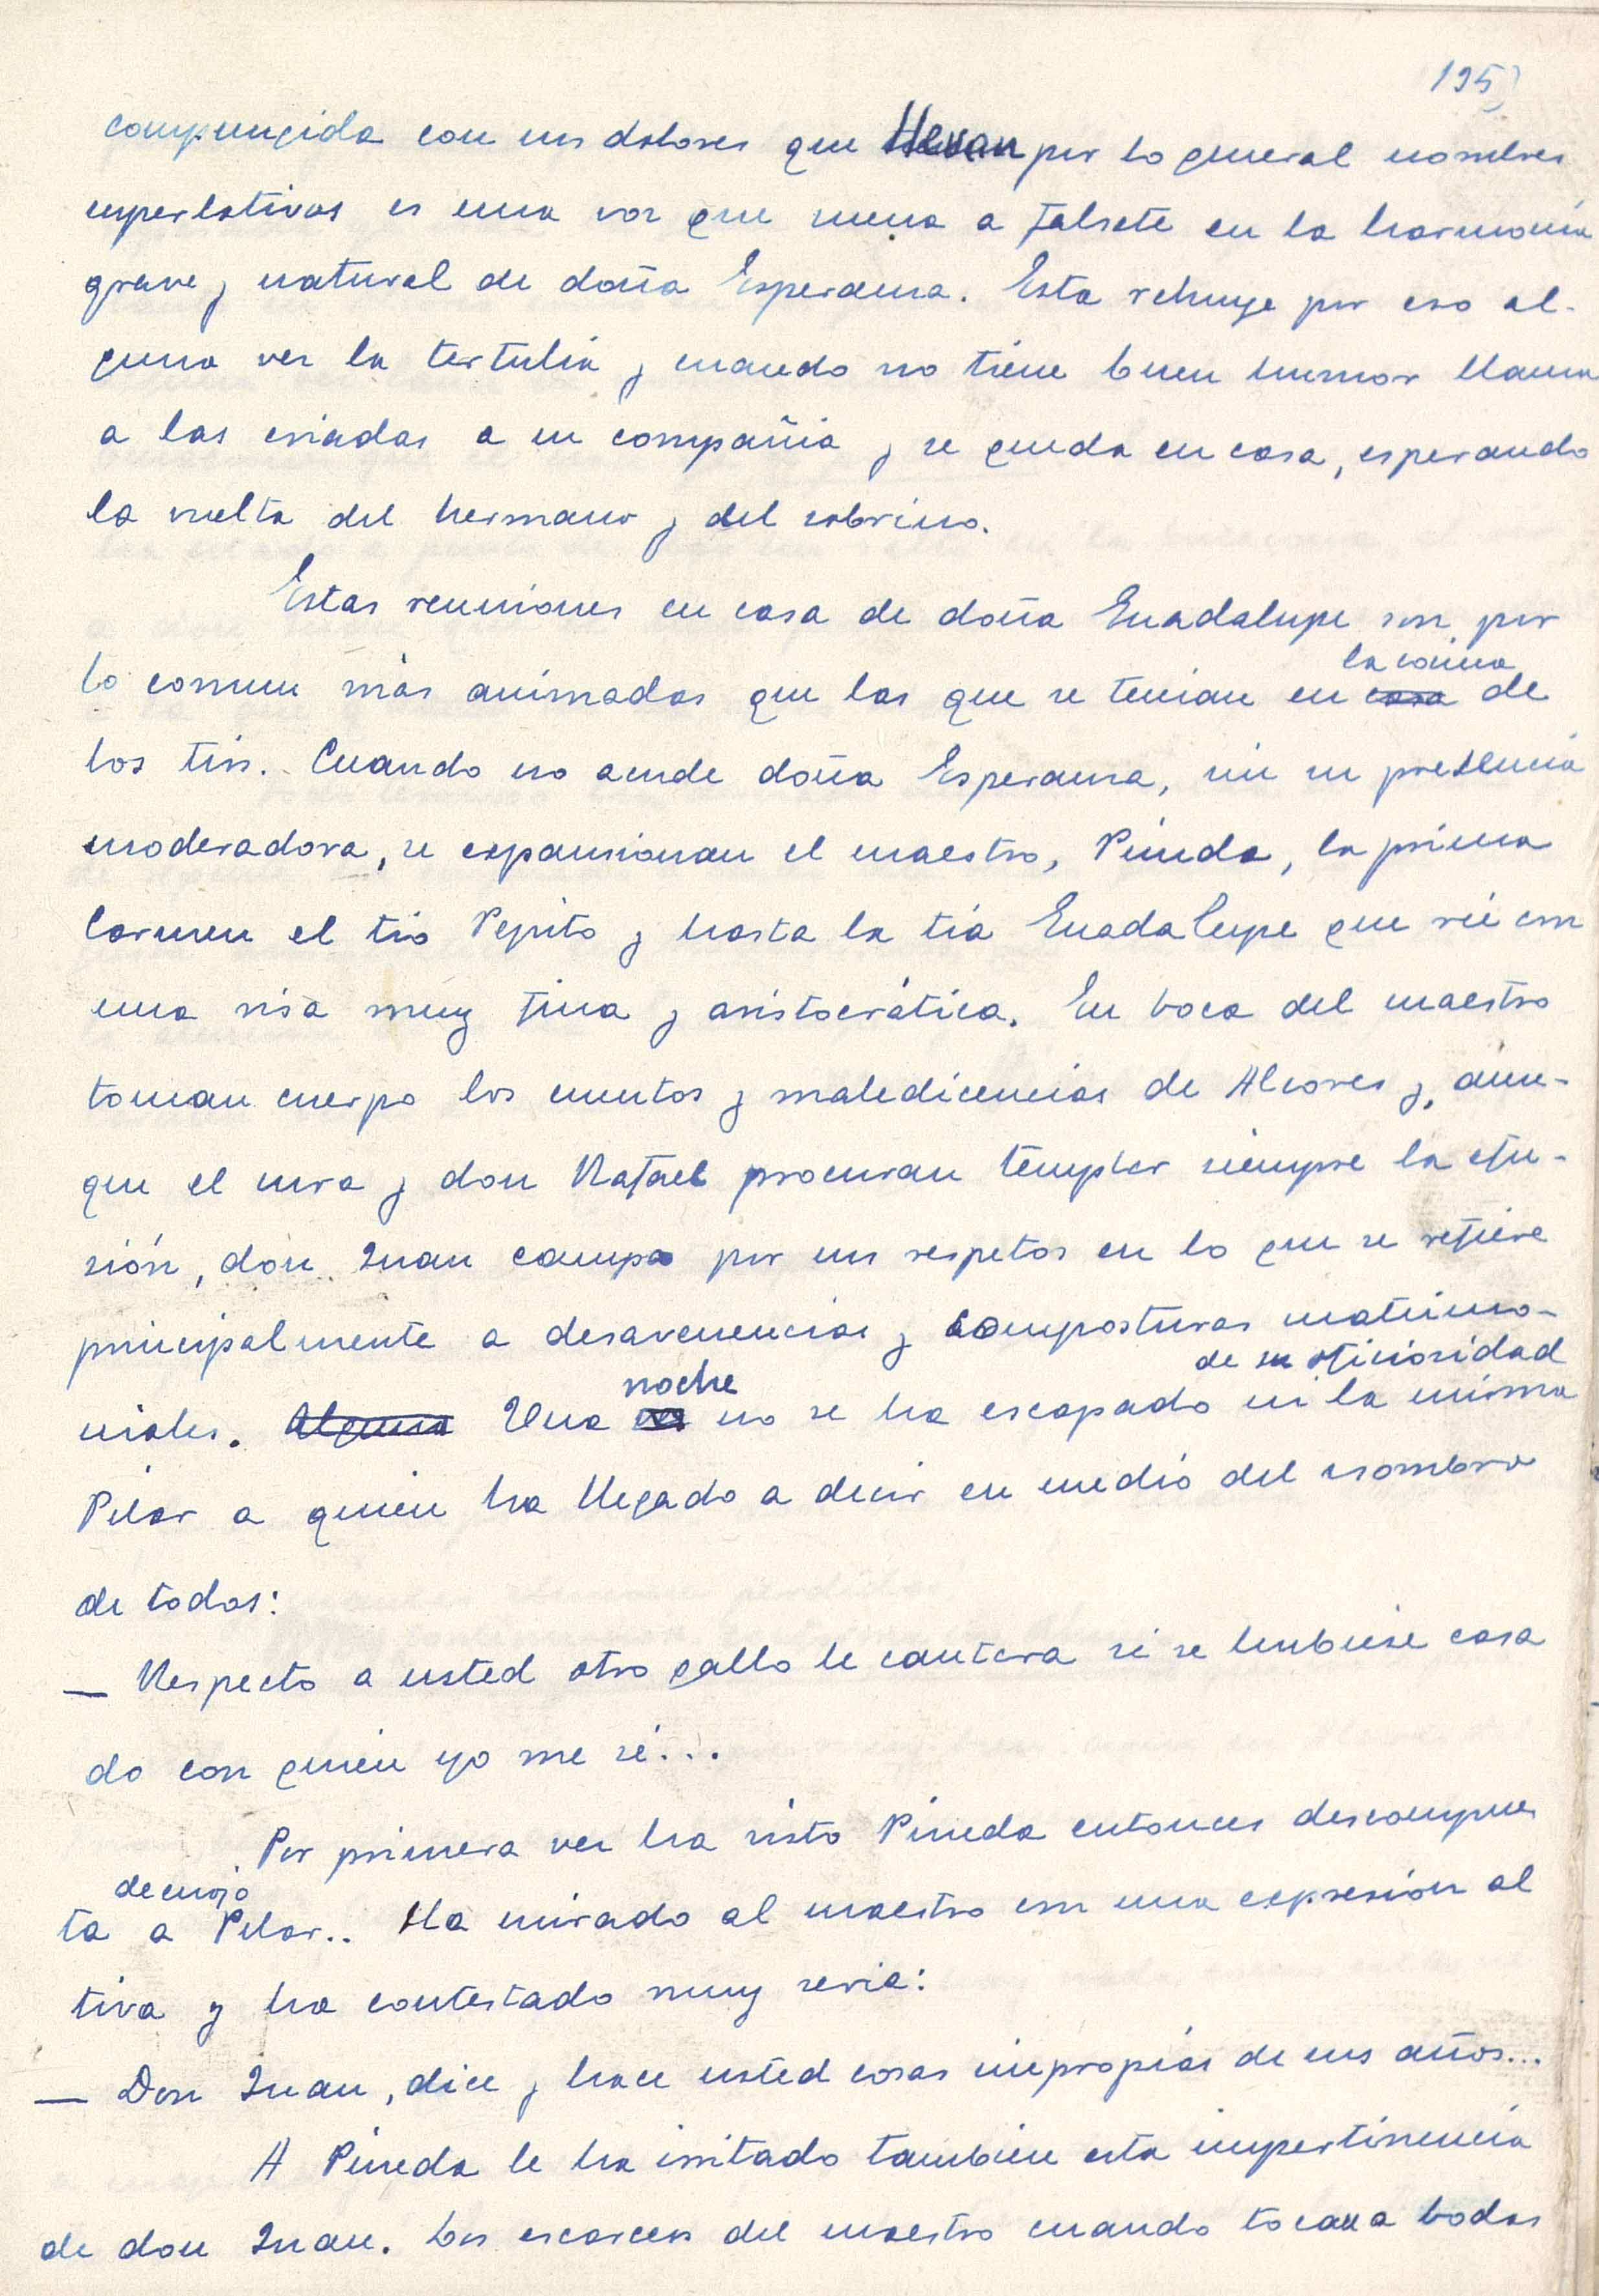 195)
compungida con sus dolores que llevan por lo general nombres
superlativos es una voz que suena a falsete en la harmonía
grave y natural de doña Esperanza. Esta rehuye por eso al-
guna vez la tertulia y cuando no tiene buen humor llama
a las criadas a su compañía y se queda en casa, esperando
la vuelta del hermano y del sobrino.
Estas reuniones en casa de doña Guadalupe son por
la cocina
lo comun más animadas que las que se tenian en casa de
los tíos. Cuando no acude doña Esperanza, sin su presencia
moderadora, se expansionan el maestro, Pineda, la prima
Carmen el tío Pepito y hasta la tía Guadalupe que ríe con
una risa muy fina y aristocrática. En boca del maestro
toman cuerpo los cuentos y maledicencias de Alcores y, aun-
que el cura y don Rafael procuran templar siempre la efu-
sión, don Juan campa por sus respetos en lo que se refiere
principalmente a desavenencias y composturas matrimo-
de su oficiosidad
noche
niales. Alguna Una vez no se ha escapado ni la misma
Pilar a quien ha llegado a decir en medio del asombro
de todos:
— Respecto a usted otro gallo le cantara si se hubiese casa
do con quien yo me sé...
Por primera vez ha visto Pineda entonces descompues
de enojo
ta a Pilar.. Ha mirado al maestro con una expresión al
tiva y ha contestado muy seria:
— Don Juan, dice y hace usted cosas impropias de sus años...
A Pineda le ha irritado tambien esta impertinencia
de don Juan. Los escarceos del maestro cuando tocan a bodas